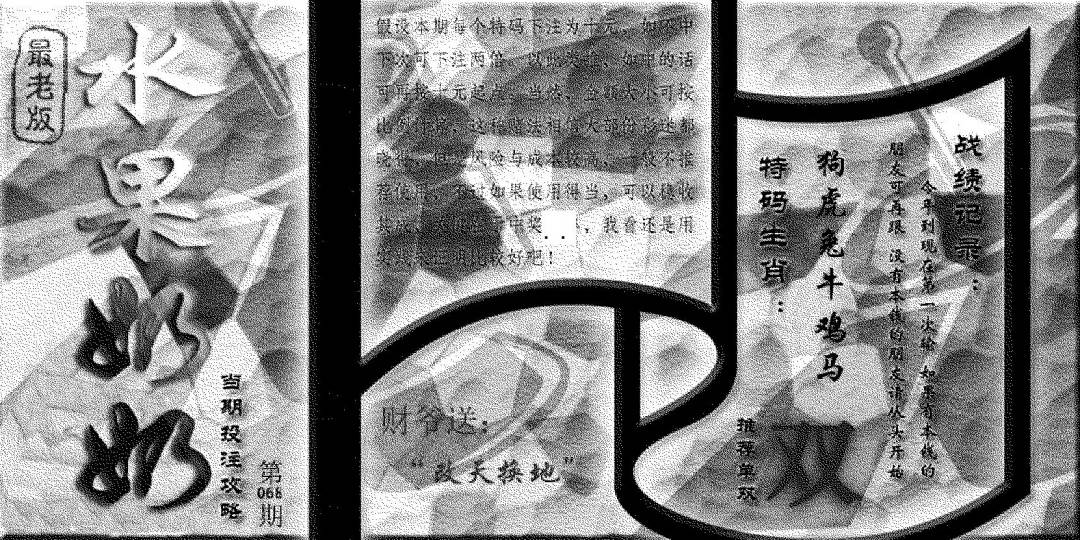 最老版
水果奶奶
当期投注攻略
第068期
假设本期每个特码下注为十元，如不中
下次可下注两倍，以此类推，如中的话
可再按十元起点，当然，金额大小可按
比例作答，这种赌法相信大部份彩迷都
晓得，但是风险与成本较高，一般不推
荐使用，不过如果使用得当，可以稳收
中奖，我看还是用
比较好吧！
财爷送：
“改天换地”
战绩记录：
今年到现在第一次输 如果有本钱的
朋友可再跟 没有本钱的朋友请从头开始
狗虎兔牛鸡马
特码生肖：
推荐单双
双